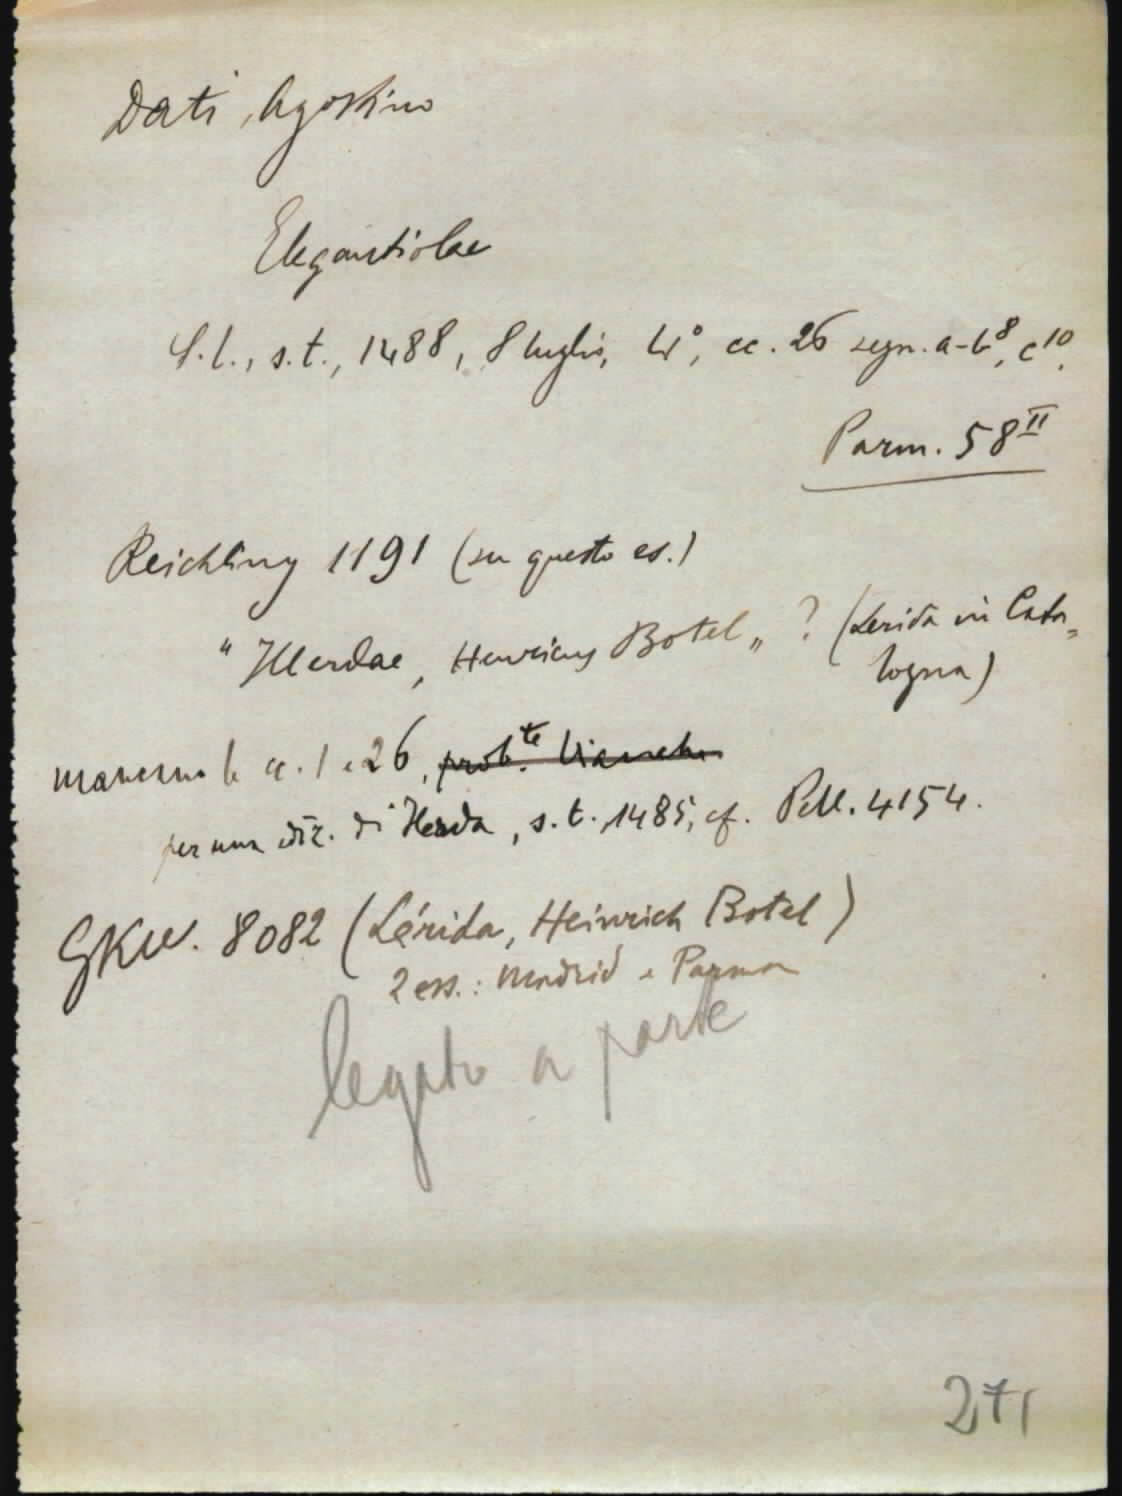 Dati, Agostino
Elegantiolae
S.l., s.t., 1488, 8 luglio, 4°, cc. 26 segn. a-b⁸, c¹⁰.
Parm. 58ᴵᴵ
Reichling 1191 (su questo es.)
"Ilerdae, Henricus Botel„ ? (Lerida in Cata„
logna)
mancano le cc. 1 e 26, prob.te bianche
per una ediz. di Ilerda, s.t. 1485, cf. Pell. 4154.
GKW. 8082 (Lérida, Heinrich Botel)
2 ess.: Madrid e Parma
legato a parte
271